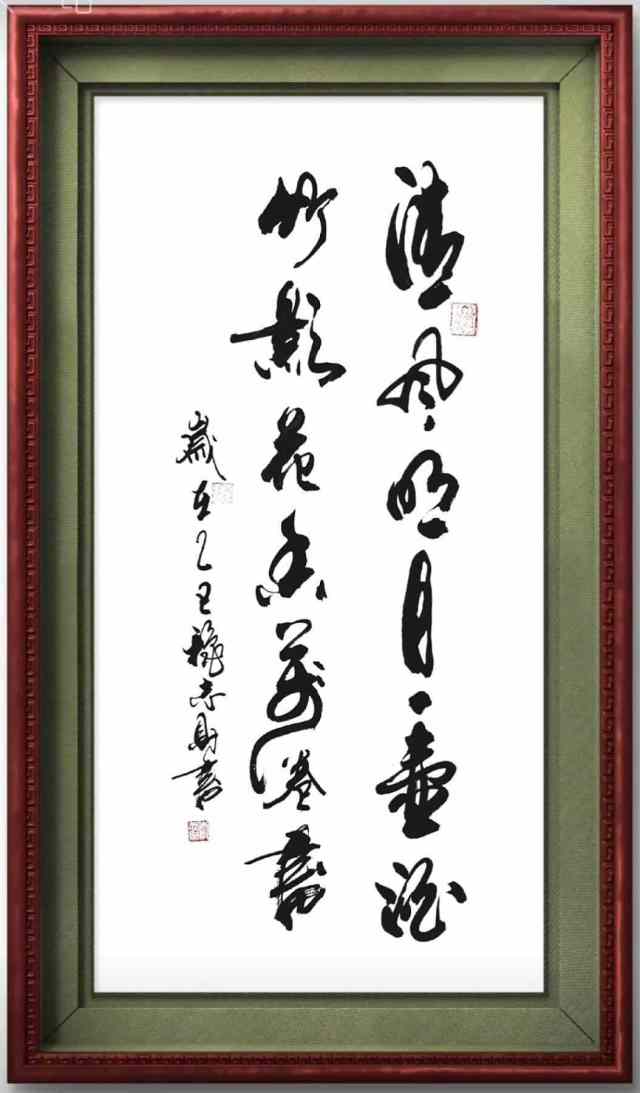 清风明月一壶酒
竹影花香万卷书
岁在乙丑 志财书